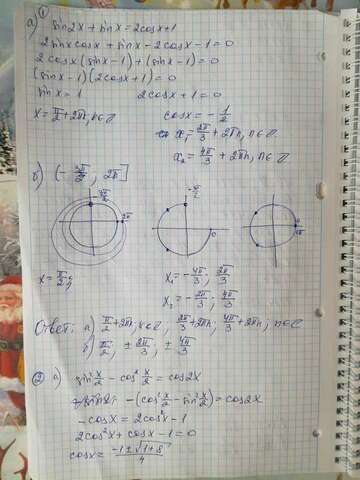 ①
а) sin2x + sinx = 2cosx + 1
2sinxcosx + sinx - 2cosx - 1 = 0
2cosx(sinx - 1) + (sinx - 1) = 0
(sinx - 1)(2cosx + 1) = 0
sinx = 1 2cosx + 1 = 0
x = π/2 + 2πn, n∈Z cosx = -1/2
x₁ = 2π/3 + 2πn, n∈Z
x₂ = 4π/3 + 2πn, n∈Z
б) (-3π/2; 2π]
x = π/2; x₁ = -4π/3; 2π/3
x₂ = -2π/3; 4π/3
Ответ: а) π/2 + 2πn, n∈Z, 2π/3 + 2πn; 4π/3 + 2πn, n∈Z
б) π/2, ± 2π/3, ± 4π/3
② а) sin² x/2 - cos² x/2 = cos2x
-(cos² x/2 - sin² x/2) = cos2x
-cosx = 2cos²x - 1
2cos²x + cosx - 1 = 0
cosx = (-1 ± √(1+8))/4